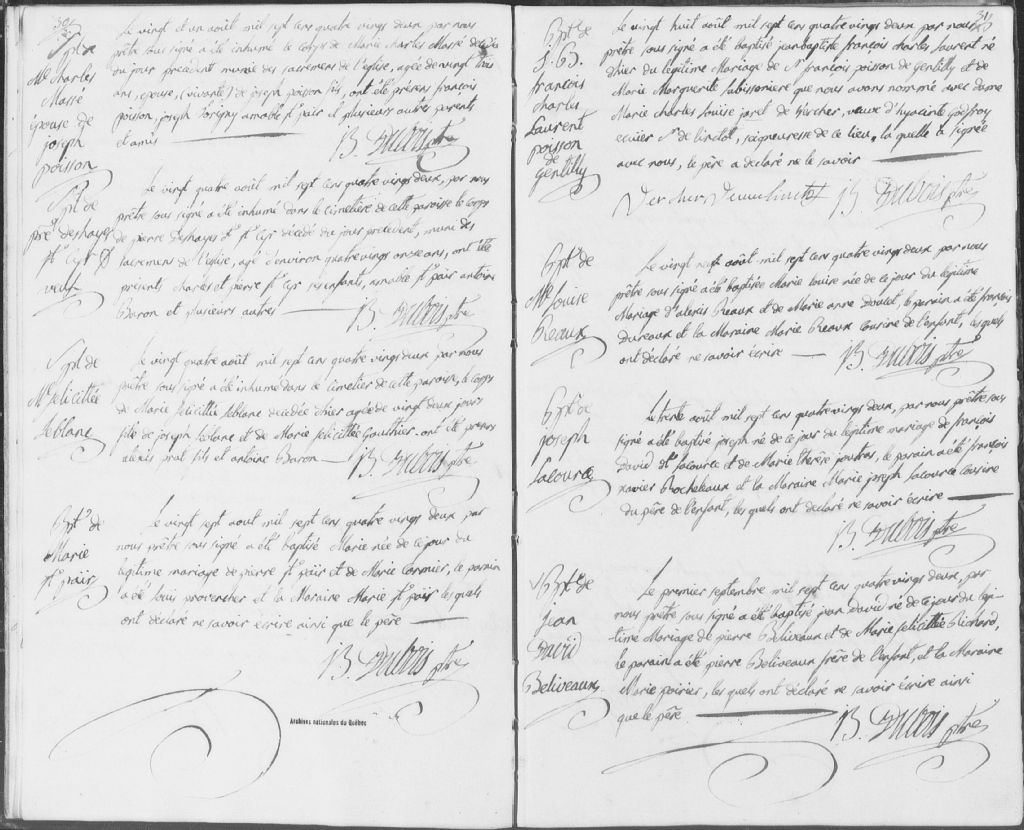 Spt de
Mie Charles
Massé
épouse de
joseph
poisson
Le vingt et un août mil sept cens quatre vings deux par nous
prêtre sous signé a été inhumé le corps de Marie Charles Massé décédée
du jour précédent munie des sacremens de l'église, agée de vingt trois
ans, epouse, (vivante) de joseph poisson fils, ont été présens françois
poisson, joseph Lorigny amable st pair et plusieurs autres parents
et amis
B. Dubois ptre
Spt de
pre deshayes
st Cyr
veuf
Le vingt quatre août mil sept cens quatre vings deux, par nous
prêtre sous signé a été inhumé dans le cimetière de cette paroisse le corps
de pierre Deshayes dt st Cyr décédé du jour précédent, muni des
sacremens de l'église, agé d'environ quatre vings onze ans, ont été
présents, charles et pierre st Cyr ses enfants, amable st pair antoine
Baron et plusieurs autres
B. Dubois ptre
Spt de
Mie felicittée
Leblanc
Le vingt quatre août mil sept cens quatre vings deux par nous
prêtre sous signé a été inhumé dans le cimetier de cette paroisse, le corps
de Marie felicittée leblanc decedée d'hier agée de vingt deux jours
fille de joseph leblanc et de Marie felicittée Gauthier. ont été présens
alexis prat fils et antoine Baron
B. Dubois ptre
Bpte de
Marie
st pair
Le vingt sept août mil sept cens quatre vings deux par
nous prêtre sous signé a été baptisé Marie née de ce jour du
légitime mariage de pierre st pair et de Marie Cormier, le parain
a été louis provencher et la Maraine Marie st pair les quels
ont déclaré ne savoir écrire ainsi que le père
B. Dubois ptre
Archives nationales du Québec
Bpte de
J. B.
françois
charles
Laurent
poisson
de
Gentilly
Le vingt huit août mil sept cens quatre vings deux par nous
prêtre sous signé a été baptisé jean baptiste françois charles laurent né
d'hier du légitime Mariage de Sr françois poisson de Gentilly et de
Marie Marguerite que nous avons nommé avec dame
Marie charles louise jarel de Vercher, veuve d'hyacinte godfroy
ecuier Sr de linctot, seigneuresse de ce lieu, la quelle a signée
avec nous, le père a déclaré ne le savoir
B. Dubois ptre
Bpte de
Mie louise
Reaux
Le vingt neuf août mil sept cens quatre vings deux par nous
prêtre sous signé a été baptisée Marie louise née de ce jour du légitime
Mariage d'alexis Reaux et de Marie anne Doucet, le parain a été françois
dureaux et la Maraine Marie Reaux cousine de l'enfant, les quels
ont déclaré ne savoir écrire
B. Dubois ptre
Bpte de
joseph
Lacource
Le trente août mil sept cens quatre vings deux, par nous prêtre sous
signé a été baptisé joseph né de ce jour du légitime mariage de françois
David dt lacource et de Marie therèse poutras, le parain a été françois
xavier Rocheleaux et la Maraine Marie joseph lacource cousine
du père de l'enfant, les quels ont déclaré ne savoir écrire
B. Dubois ptre
Bpte de
jean
David
Beliveaux
Le premier septembre mil sept cens quatre vings deux, par
nous prêtre sous signé a été baptisé jean david né de ce jour du légi-
time Mariage de pierre Beliveaux et de Marie felicittée Richard,
le parain a été pierre Beliveaux frère de l'enfant, et la Maraine
Marie poirier, les quels ont déclaré ne savoir écrire ainsi
que le père
B. Dubois ptre